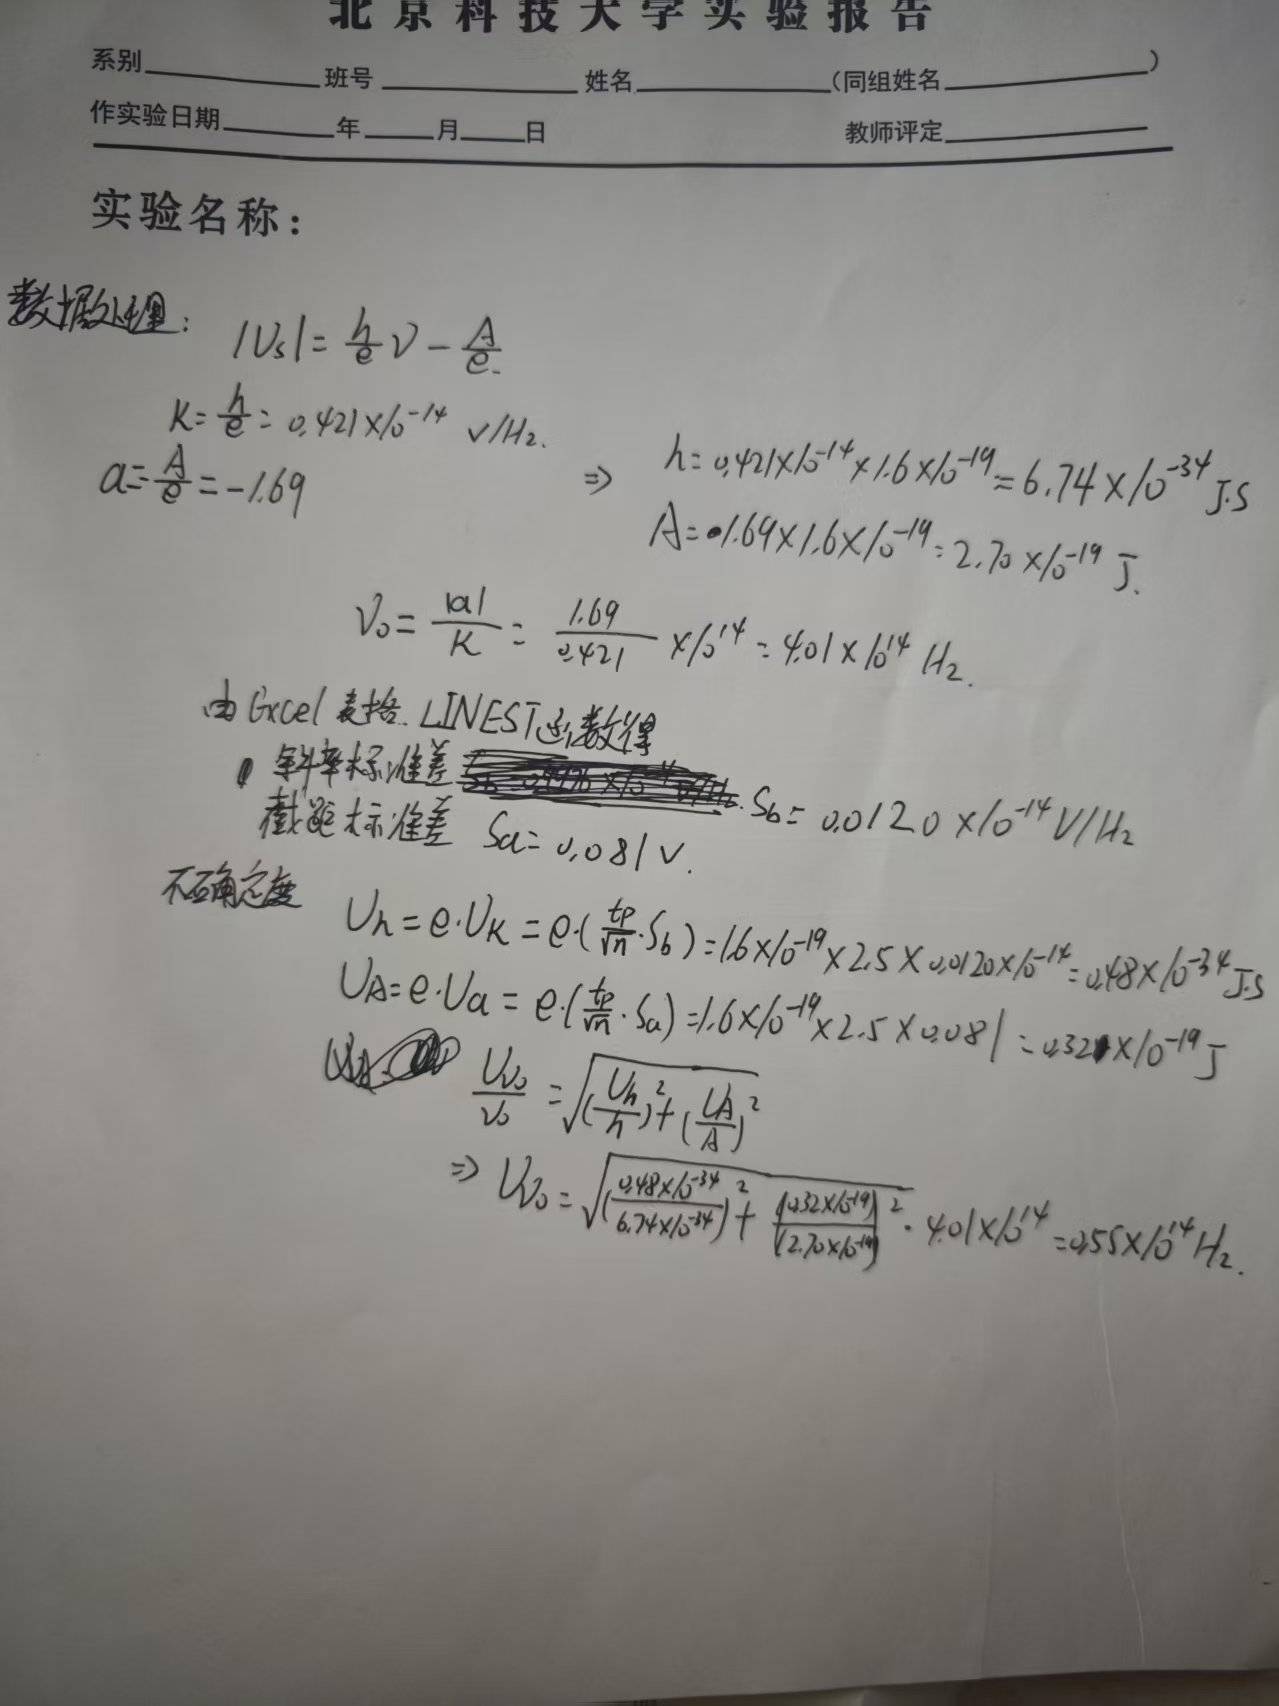 北京科技大学实验报告
系别 班号 姓名 (同组姓名 )
作实验日期 年 月 日 教师评定
实验名称:
数据处理:
|Us| = h/e ν - A/e.
K = h/e = 0.421×10^-14 V/Hz.
a = A/e = -1.69 ⇒ h = 0.421×10^-14×1.6×10^-19 = 6.74×10^-34 J·S
A = 1.69×1.6×10^-19 = 2.70×10^-19 J.
ν₀ = |a|/K = 1.69/0.421 ×10^14 = 4.01×10^14 Hz.
由Excel表格.LINEST函数得
斜率标准差 Sb = 0.0120×10^-14 V/Hz
截距标准差 Sa = 0.081 V.
不确定度
Uh = e·UK = e·(tp/√n·Sb) = 1.6×10^-19×2.5×0.0120×10^-14 = 0.48×10^-34 J·S
UA = e·Ua = e·(tp/√n·Sa) = 1.6×10^-19×2.5×0.081 = 0.32×10^-19 J
Uν₀/ν₀ = √((Uh/h)²+(UA/A)²)
⇒ Uν₀ = √((0.48×10^-34/6.74×10^-34)²+((0.32×10^-19)/(2.70×10^-19))²)·4.01×10^14 = 0.55×10^14 Hz.